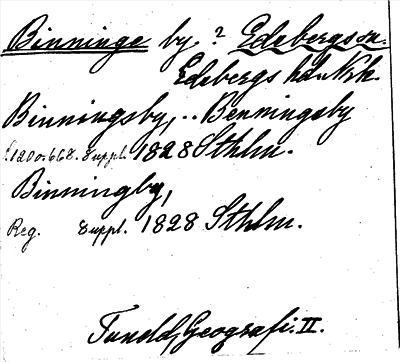 Binninge by ? Edebergs sn.
Edebergs hd. Nrk.
Binningsby, .. Benningeby
s. 1200. 668. Suppl. 1828 Sthlm.
Binningby,
Reg. Suppl. 1828 Sthlm.
Tuneld, Geografi. II.